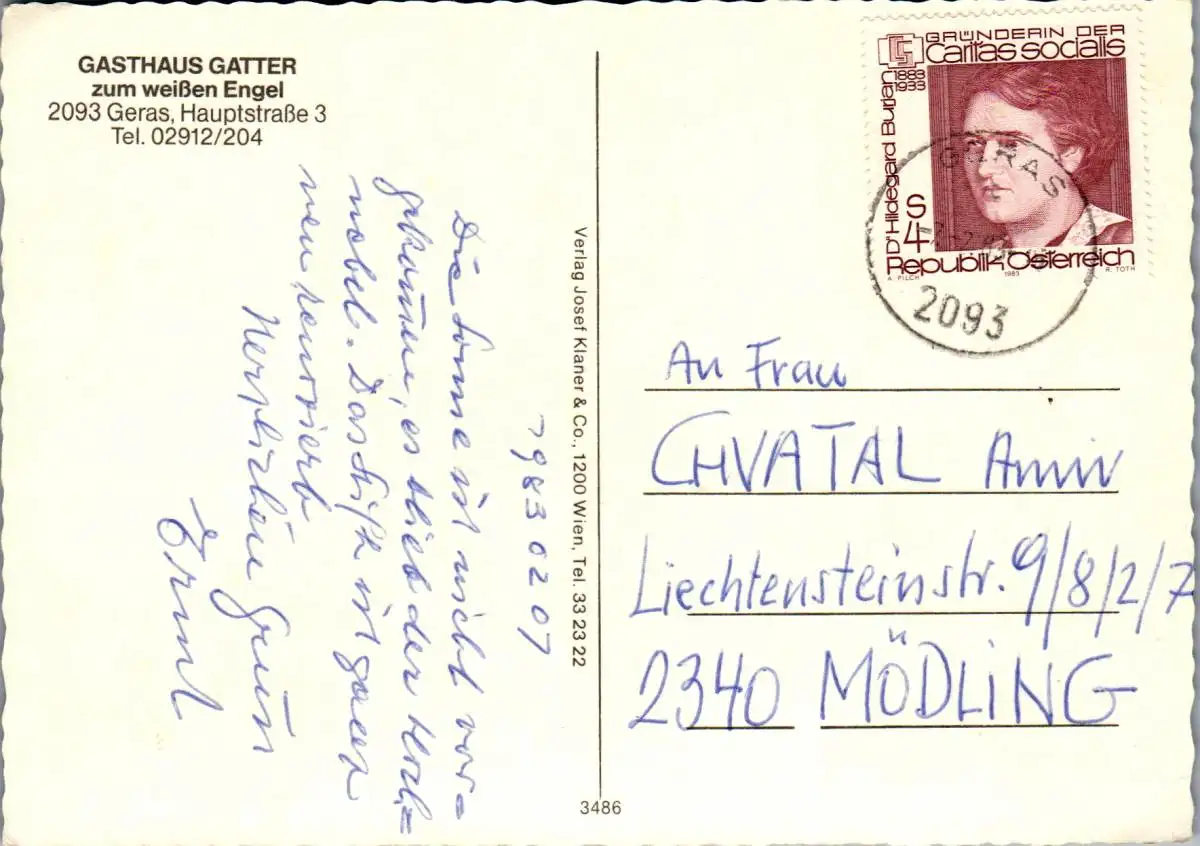 GASTHAUS GATTER
zum weißen Engel
2093 Geras, Hauptstraße 3
Tel. 02912/204
1983 02 07
Die Sonne ist nicht vor=
gekommen, es blieb der Hoch=
nebel. Das Stift ist ganz
neu renoviert
Herzlichen Gruß
Verlag Josef Klaner & Co., 1200 Wien, Tel. 33 23 22
3486
GRÜNDERIN DER
Caritas socialis
CS
1883
1933
Dr Hildegard Burjan
S
4
Republik Österreich
A. PILCH
1983
R. TOTH
GERAS
2093
An Frau
CHVATAL
Liechtensteinstr. 9/8/2/7
2340 MÖDLING